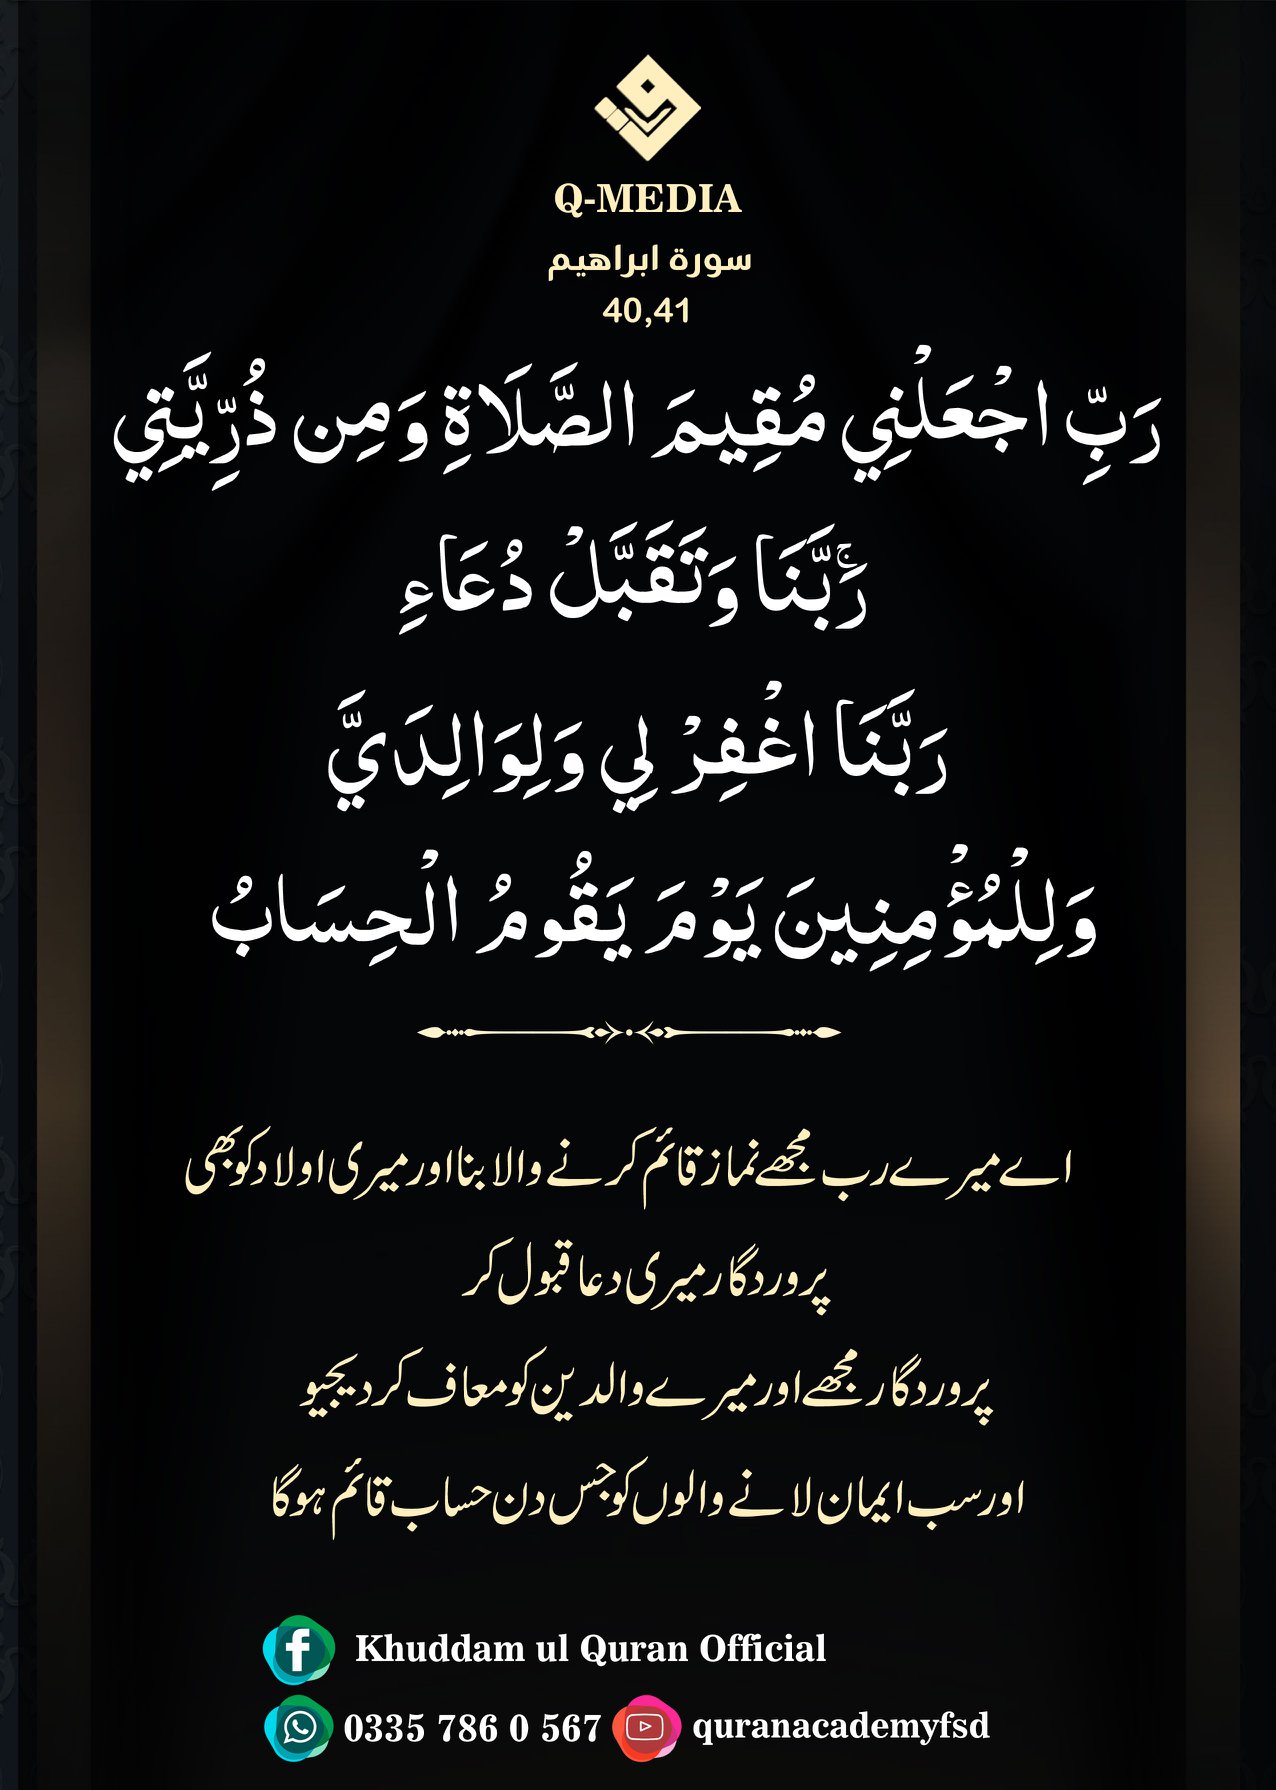 Q-MEDIA
سورة ابراهيم
40,41
رَبِّ اجْعَلْنِي مُقِيمَ الصَّلَاةِ وَمِن ذُرِّيَّتِي
رَۚبَّنَا وَتَقَبَّلْ دُعَاءِ
رَبَّنَا اغْفِرْ لِي وَلِوَالِدَيَّ
وَلِلْمُؤْمِنِينَ يَوْمَ يَقُومُ الْحِسَابُ
اے میرے رب مجھے نماز قائم کرنے والا بنا اور میری اولاد کو بھی
پروردگار میری دعا قبول کر
پروردگار مجھے اور میرے والدین کو معاف کر دیجیو
اور سب ایمان لانے والوں کو جس دن حساب قائم ہوگا
Khuddam ul Quran Official
0335 786 0 567 quranacademyfsd